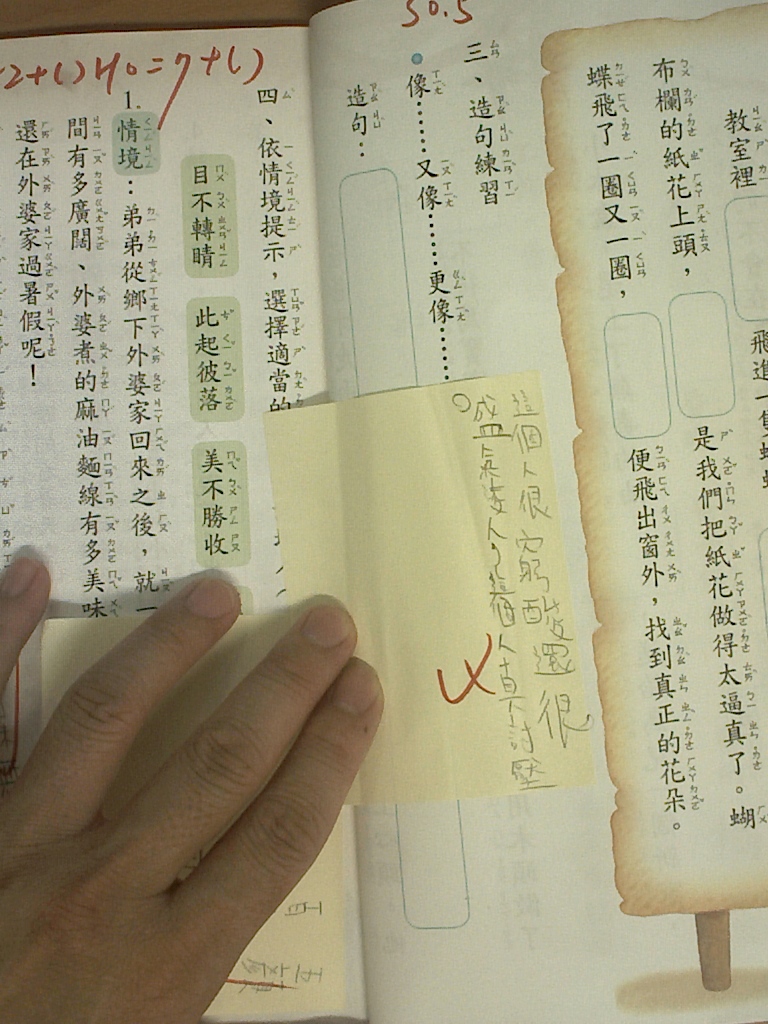 50.5
教室裡
飛進一隻
布欄的紙花上頭，
是我們把紙花做得太逼真了。蝴
蝶飛了一圈又一圈，
便飛出窗外，找到真正的花朵。
三、造句練習
像……又像……更像……
造句：
這個人很窮酸還很
人 這個人真討厭
四、依情境提示，選擇適當的
目不轉睛
此起彼落
美不勝收
1.
情境：弟弟從鄉下外婆家回來之後，就一
間有多廣闊、外婆煮的麻油麵線有多美味
還在外婆家過暑假呢！